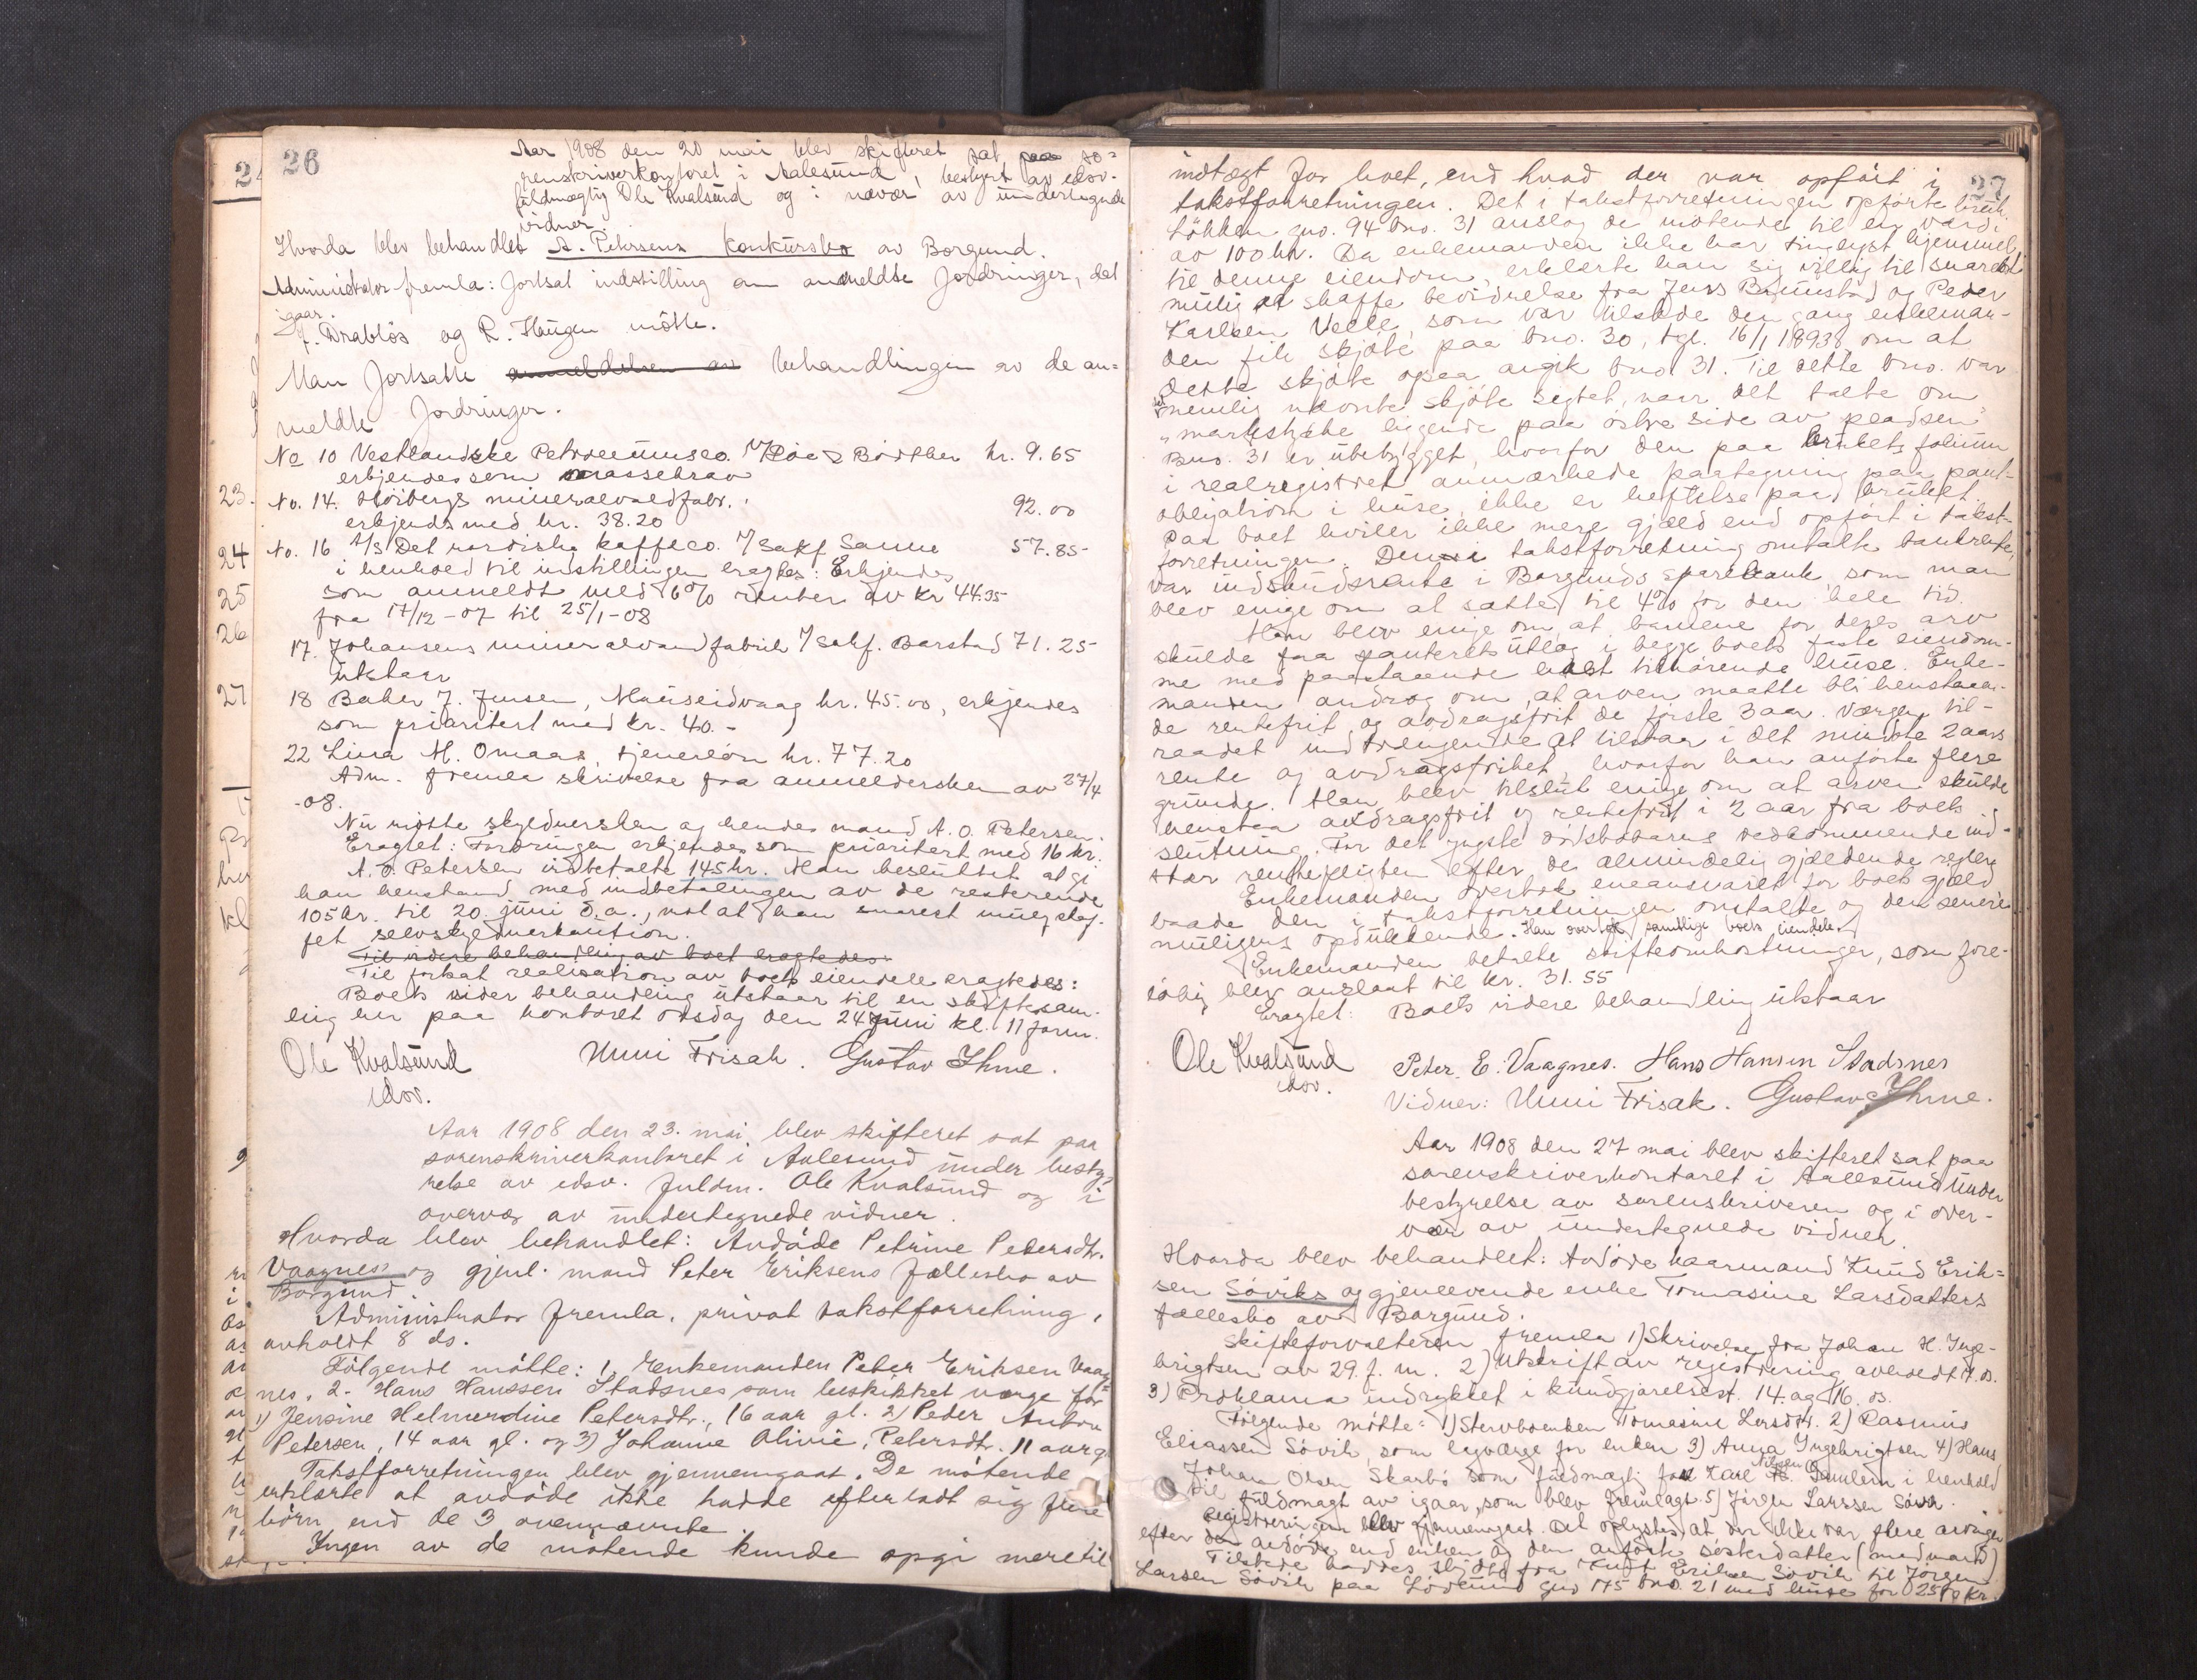 26
Aar 1908 den 20 mai blev skifteret sat paa so=
renskriverkontoret i Aalesund, bestyret av edsv.
fuldmægtig Ole Kvalsund og i nævær av undertegnede
vidner.
Hvorda blev behandlet A. Petersens konkursbo av Borgund.
Administrator fremla: fortsat indstilling om anmeldte fordringer, dat
igaar.
J. Drabløs og R. Haugen møtte.
Man fortsatte anmeldelsen av behandlingen av de an=
meldte fordringer.
No 10 Vestlandske Petroleumsco. v/ Bödtker kr. 9.65
erkjendes som massekrav
No. 14. Höibergs mineralvandfabr.: 92.00
erkjendes med kr. 38.20
No. 16 A/S Det nordiske kaffeco. v/ Sakf. Sanne 57.85
i henhold til instillingen eragtes: Erkjendes
som anmeldt med 6% renter av kr 44.35
fra 17/12-07 til 25/1-08
17. Johansens mineralvandfabrik v/ Sakf. Barstad 71.25
Utstaar
18 Baker J. Jensen, Mauseidvaag kr. 45.00, erkjendes
som prioritert med kr. 40.-
22 Lina M. Omaas, tjenerløn kr. 77.20
Adm. fremla skrivelse fra anmeldersken av 27/4
-08.
Nu møtte skyldnersken og hendes mand A. O. Petersen.
Eragtet: Fordringen erkjendes som prioritert med 16 kr.
A. O. Petersen indbetalte 145 kr. Man besluttet at gi
han henstand med indbetalingen av de resterende
105 kr. til 20. juni d.a., mot at han snarest mulig skaf.
fet selvskyldnerkaution.
Til videre behandling av boet eragtedes:
Til fortsat realisation av boets eiendele eragtedes:
Boets vider behandling utstaar til en skiftesam-
ling her paa kontoret onsdag den 24 juni kl. 11 form.
Ole Kvalsund
edsv.
Unni Frisak. Gustav Ihme.
Aar 1908 den 23. mai blev skifteret sat paa
sorenskriverkontoret i Aalesund under besty=
relse av edsv. fuldm. Ole Kvalsund og i
overvær av undertegnede vidner.
Hvorda blev behandlet: Avdøde Petrine Petersdtr.
Vaagnes og gjenl. mand Peter Eriksens fællesbo av
Borgund.
Administrator fremla, privat takstforretning,
avholdt 8 ds.
Følgende møtte: 1. Enkemanden Peter Eriksen Vaag
nes. 2. Hans Hanssen Stadsnes som beskikket verge for
1) Jensine Helmerdine Petersdtr., 16 aar gl. 2) Peder Anton
Petersen, 14 aar gl. og 3) Johanne Olivie, Petersdtr. 11 aar g
Takstforretningen blev gjennemgaat. De møtende
erklærte at avdøde ikke hadde efterladt sig flere
børn end de 3 ovennævnte.
Ingen av de møtende kunde opgi mere til
27
indtægt for boet, end hvad der var opført i
takstforretningen. Det i takstforretningen opførte bruk
Løkken gno. 94 bno. 31 anslog de møtende til en værdi
av 100 kr. Da enkemanden ikke har tinglyst hjemmel
til denne eiendom, erklærte han sig villig til snarest
mulig at skaffe bevidnelse fra Jens og Peder
Karlsen Velle, som var tilstede den gang enkeman-
den fik skjøte paa bno. 30, tgl. 16/1 1893, om at
dette skjøte ogsaa angik bno 31. Til dette bno. var
nemlig nævnte skjøte sigtet, naar det talte om
"markstykke liggende paa østre side av pladsen"
Bno. 31 er ubebygget, hvorfor den paa brukets folium
i realregistret anmærkede paategning paa pant-
obligation i huse, ikke er heftelse paa bruket.
Paa boet hviler ikke mere gjæld end opført i takst-
forretningen. Den i takstforretning omtalte bankrente,
var indskudsrente i Borgunds sparebank, som man
blev enige om at sætte til 4% for den hele tid.
Man blev enige om at barnene for deres arv
skulde faa panteret utlæg i begge boets faste eiendom-
me med paastaaende boet tilhørende huse. Enke-
manden androg om at arven maatte bli henstaaen-
de rentefrit og avdragsfrit de første 3 aar. Værgen til-
raadet indtrængende at tilstaa i det mindste 2 aars
rente og avdragsfrihet, hvorfor han anførte flere
grunde. Man blev tilslut enige om at arven skulde
henstaa avdragsfrit og rentefrit i 2 aar fra boets
slutning. For det yngste vedkommende ind-
træer rentepligten efter de almindelig gjældende regler.
Enkemanden overtok eneansvaret for boets gjæld
baade den i takstforretningen omtalte og den senere
muligens opdukkende. Han overtok samtlige boets eiendele.
Enkemanden betalte skifteomkostninger, som fore-
løbig blev anslaat til kr. 31.55
Eragtet: Boets videre behandling utstaar
Ole Kvalsund
edsv.
Peter E. Vaagnes. Hans Hansen Stadsnes
Vidner: Unni Frisak. Gustav Ihme.
Aar 1908 den 27 mai blev skifteret sat paa
sorenskriverkontoret i Aalesund under
bestyrelse av sorenskriveren og i over-
vær av undertegnede vidner.
Hvorda blev behandlet: Avdøde kaarmand Knud Erik=
sen Søviks og gjenlevende enke Tomasine Larsdatters
fællesbo av Borgund.
Skifteforvalteren fremla 1) Skrivelse fra Johan H. Inge-
brigtsen av 29. f. m. 2) Utskrift av registrering avholdt 7. ds.
3) Proklama indrykket i kundgjørelsest. 14. og 16. ds.
Følgende møtte: 1) Stervboenken Tomasine Larsdtr. 2) Rasmus
Eliassen Søvik, som lagværge for enken 3) Anna Ingebrigtsen 4) Hans
Johan Olsen Skarbø som fuldmægt. for Karl Nilsen i henhold
til fuldmagt av igaar, som blev fremlagt. 5) Jørgen Larssen Søvik.
Registreringen blev gjennemgaat. Det oplystes at der ikke var flere arvinger
efter den avdøde end enken og den anførte søsterdatter (med mand)
Tilstede haddes skjøte fra Knut Eriksen Søvik til Jørgen
Larsen Søvik paa gno 175 bno. 21 med huse for 2500 kr.
23.
24
25
26
27